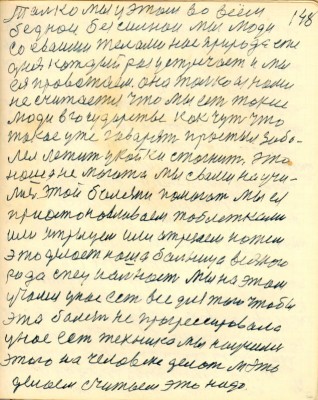 148
Только мы у этом во всём
бедном бессильном мы люди
со своими телами нас природа
дня который раз встречает и мы
ея провожаем. она только с нами
не считается что мы есть такие
люди в государстве как чуть что
такое уже говорят простыл забо-
лел лежит у койки стогнит. это
наше не
мы своим научи-
лись этой болезни помогать мы ея
приостонавливаем таблетками
или утрыуем или отрезаем ножем
это делает наша бальница всякого
рода спец
мы на этом
учёном у нас есть все для того чтобы
эта болезн не прогрессировала
у нас ест техника мы научили
этого на человеке делат мы это
делаем считаем это надо.